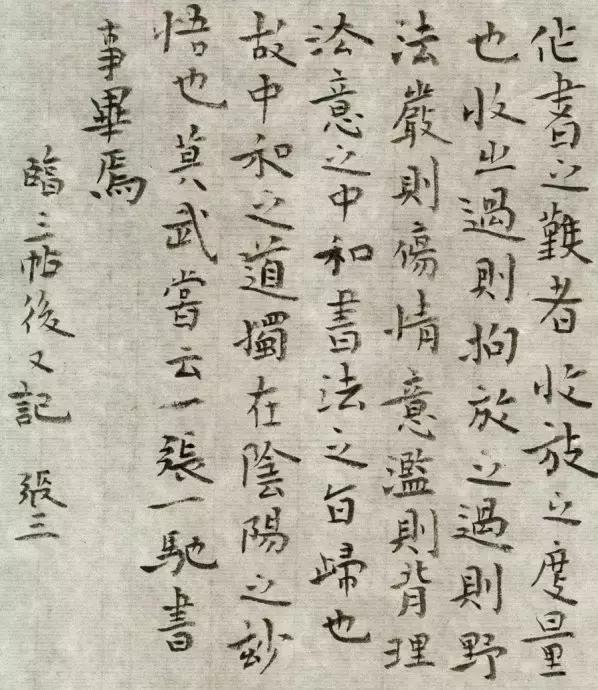 作書之難者收放之度量
也收之過則拘放之過則野
法嚴則傷情意濫則背理
法意之中和書法之旨歸也
故中和之道獨在陰陽之玅
悟也莫武嘗云一張一馳書
事畢焉
臨三帖後又記 張三